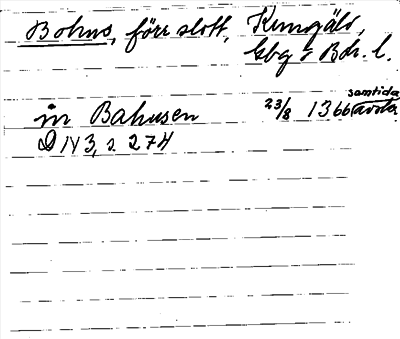 Bohus, förr slott, Kungälv,
Gbg o Boh. l.
in Bahusen 23/8 1366 samtida avskr.
D IV 3, s. 274